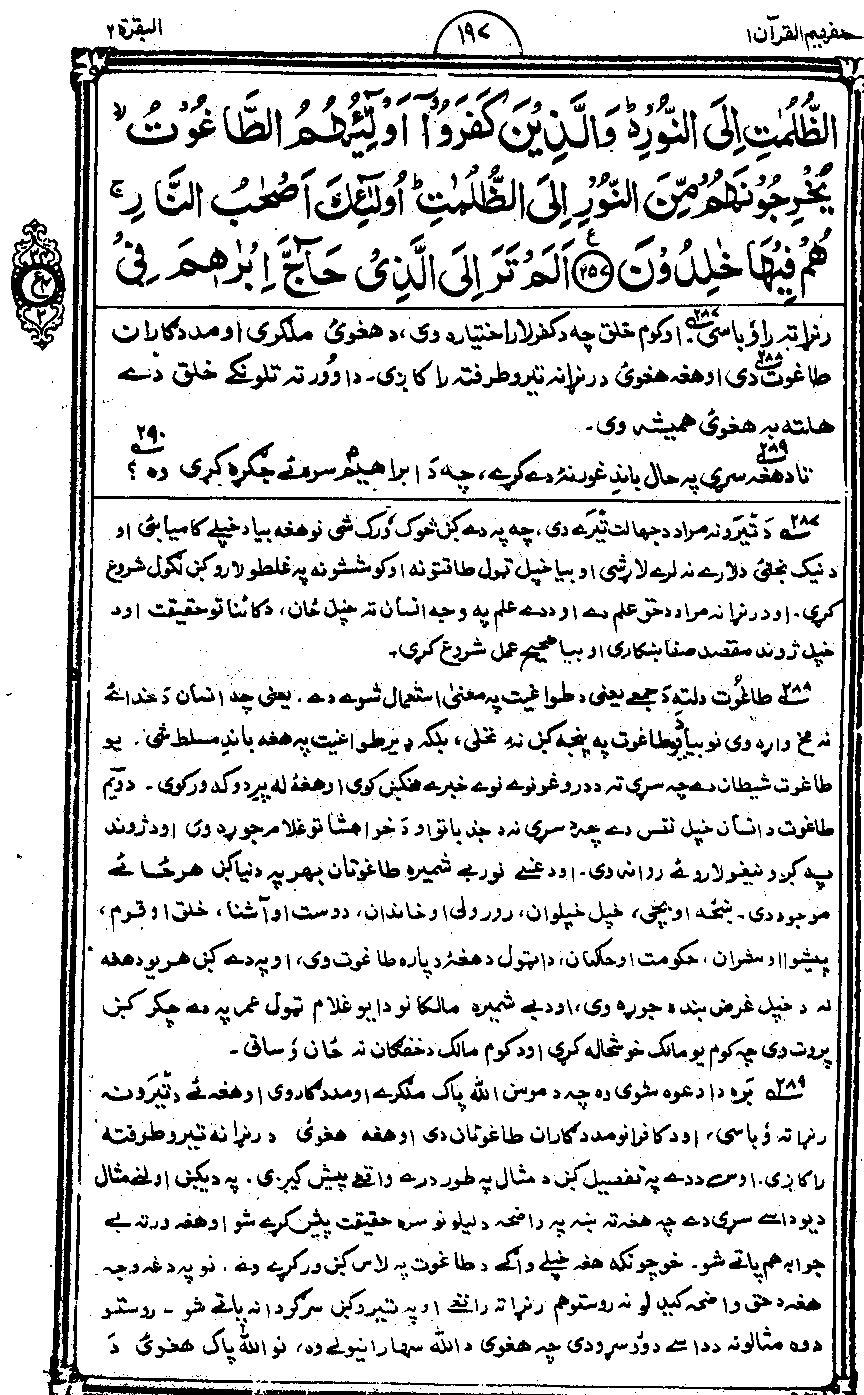 تفهیم القرآن ۱
۱۹۷
البقرة ۲
الظُّلُمٰتِ اِلَى النُّوْرِ ؕ وَالَّذِيْنَ كَفَرُوْۤا اَوْلِيٰٓـئُهُمُ الطَّاغُوْتُ ۙ
يُخْرِجُوْنَهُمْ مِّنَ النُّوْرِ اِلَى الظُّلُمٰتِ ؕ اُولٰٓئِكَ اَصْحٰبُ النَّارِ ۚ
هُمْ فِيْهَا خٰلِدُوْنَ ﴿۲۵۷﴾ اَلَمْ تَرَ اِلَى الَّذِىْ حَآجَّ اِبْرٰهٖمَ فِىْ
رنړا ته راؤباسی ۲۸۷. اوکوم خلق چه دکفر لار اختیاره وی، دهغوئ ملګری اومددګاران
طاغوت ۲۸۸ دی اوهغه هغوئ درنړا نه تیرو طرفته راکاږی۔ دا وورته تلونکے خلق دے
هلته به هغوئ همیشه وی۔
تا دهغه ۲۸۹ سړی په حال باندِ غور نهٔ دے کړے، چه دَ ابراهیمؑ سره ئے جګړه کړی ۲۹۰ وه ؟
۲۸۷ دَ تیرو نه مراد دجهالت تیرے دی، چه په دے کښ څوک وُرک شی نوهغه بیا دخپلے کامیابئ او
دنیک بختئ دلارے نه لرے لارشی او بیا خپل ټول طاقتونه اوکوششونه په غلطو لارو کښ لګول شروع
کړی۔ اودرنړا نه مراد دحق علم دے اودے علم په وجه انسان ته خپل ځان، دکائناتو حقیقت اود
خپل ژوند مقصد صفا ښکاری او بیا صحیح عمل شروع کړی۔
۲۸۹ طاغوت دلته دَ جمعے یعنی دطواغیت په معنیٰ استعمال شوے دے. یعنی چه انسان دَ خدائے
نه مخ واړه وی نوبیا دیو طاغوت په پنجه کښ نه نخلی، بلکه ډیر طواغیت په هغه باندِ مسلط شی. یو
طاغوت شیطان دے چه سړی ته ددروغو نوے نوے خبرے مخکښ کوی اوهغهٔ له پیردوکه ورکوی۔ دوئیم
طاغوت دانسان خپل نفس دے چه سړی نه دجذباتو او دَخواهشاتو غلام جوړه وی اودژوند
په کږو وږو لارو ئے روانه وی. اودغسے نور بے شمیره طاغوتان بهر په دنیا کښ هر ځائے
موجود دی۔ ښځه اوبچی، خپل خپلوان، رورولی اوخاندان، دوست اوآشنا، خلق اوقوم،
پیشوا اومشران، حکومت اوحکمان، دا ټول دهغهٔ دپاره طاغوت وی، اوپه دے کښ هریو دهغه
نه دخپل غرض بنده جوړه وی، اودبے شمیره مالکانو دا یو غلام ټول عمر په دے چکر کښ
پروت وی چه کوم یو مالک خوشحاله کړی اودکوم مالک دخفګان نه ځان وُساتی۔
۲۸۹ بَره دا دعوه شوی وه چه دمومن الله پاک ملګرے اومددګار وی اوهغه ئے دتیرو نه
رنړا ته وُباسی، اودکافرانو مددګاران طاغوتان دی اوهغه هغوئ درنړا نه تیرو طرفته
راکاږی. اوس ددے په تفصیل کښ دمثال په طور درے واقعے پیش کیږی. په دیکښ اولنے مثال
دیوداسے سړی دے چه هغه ته ښه په واضحه دلیلونو سره حقیقت پیش کړے شو اوهغه ورته بے
جوابه هم پاتے شو. خوچونکه هغه خپلے واګے دطاغوت په لاس کښ ورکړے وے. نو په دغه وجه
هغه دحق واضحه کیدلو نه روستو هم رنړا ته رانغے اوپه تیرو کښ سرګردانه پاتے شو - روستنو
دوه مثالونه دداسے دوؤ سړو دی چه هغوی دالله سهارا نیولے وه، نو الله پاک هغوئ دَ